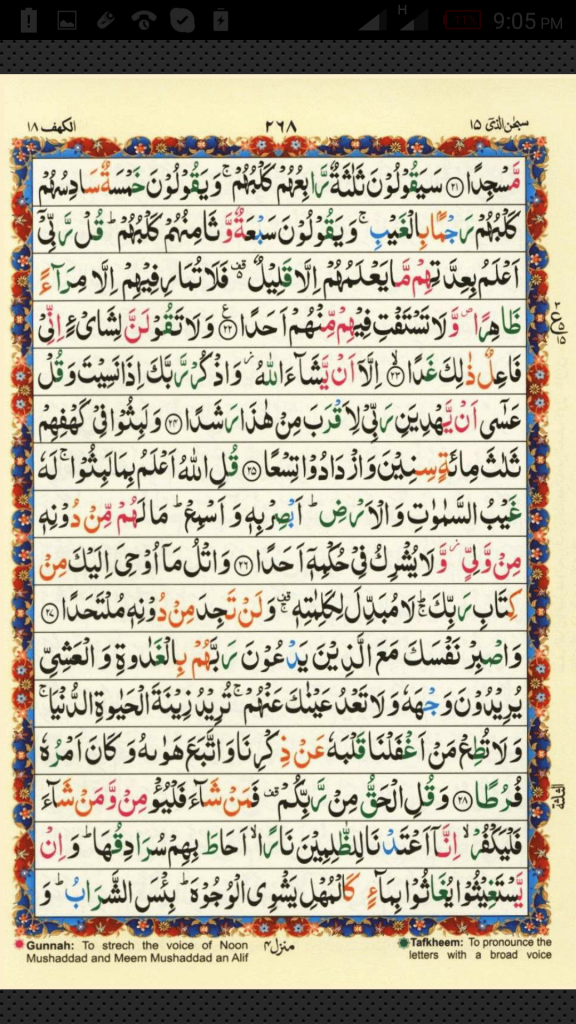 H 11% 9:05 PM
سبحٰن الذی ١٥ ٢٦٨ الکهف ١٨
مَّسْجِدًا ﴿٢١﴾ سَيَقُوْلُوْنَ ثَلٰثَةٌ رَّابِعُهُمْ كَلْبُهُمْ ۚ وَيَقُوْلُوْنَ خَمْسَةٌ سَادِسُهُمْ
كَلْبُهُمْ رَجْمًۢا بِالْغَيْبِ ۚ وَيَقُوْلُوْنَ سَبْعَةٌ وَّثَامِنُهُمْ كَلْبُهُمْ ؕ قُلْ رَّبِّيْۤ
اَعْلَمُ بِعِدَّتِهِمْ مَّا يَعْلَمُهُمْ اِلَّا قَلِيْلٌ ۫ فَلَا تُمَارِ فِيْهِمْ اِلَّا مِرَآءً
ظَاهِرًا ۪ وَّلَا تَسْتَفْتِ فِيْهِمْ مِّنْهُمْ اَحَدًا ﴿٢٢﴾ وَلَا تَقُوْلَنَّ لِشَایْءٍ اِنِّيْ
فَاعِلٌ ذٰلِكَ غَدًا ﴿٢٣﴾ اِلَّاۤ اَنْ يَّشَآءَ اللّٰهُ ؗ وَاذْكُرْ رَّبَّكَ اِذَا نَسِيْتَ وَقُلْ
عَسٰۤى اَنْ يَّهْدِيَنِ رَبِّيْ لِاَقْرَبَ مِنْ هٰذَا رَشَدًا ﴿٢٤﴾ وَلَبِثُوْا فِيْ كَهْفِهِمْ
ثَلٰثَ مِائَةٍ سِنِيْنَ وَازْدَادُوْا تِسْعًا ﴿٢٥﴾ قُلِ اللّٰهُ اَعْلَمُ بِمَا لَبِثُوْا ۚ لَهٗ
غَيْبُ السَّمٰوٰتِ وَالْاَرْضِ ؕ اَبْصِرْ بِهٖ وَاَسْمِعْ ؕ مَا لَهُمْ مِّنْ دُوْنِهٖ
مِنْ وَّلِيٍّ ؗ وَّلَا يُشْرِكُ فِيْ حُكْمِهٖۤ اَحَدًا ﴿٢٦﴾ وَاتْلُ مَاۤ اُوْحِيَ اِلَيْكَ مِنْ
كِتَابِ رَبِّكَ ؕۚ لَا مُبَدِّلَ لِكَلِمٰتِهٖ ۚ۫ وَلَنْ تَجِدَ مِنْ دُوْنِهٖ مُلْتَحَدًا ﴿٢٧﴾
وَاصْبِرْ نَفْسَكَ مَعَ الَّذِيْنَ يَدْعُوْنَ رَبَّهُمْ بِالْغَدٰوةِ وَالْعَشِيِّ
يُرِيْدُوْنَ وَجْهَهٗ وَلَا تَعْدُ عَيْنٰكَ عَنْهُمْ ۚ تُرِيْدُ زِيْنَةَ الْحَيٰوةِ الدُّنْيَا ۚ
وَلَا تُطِعْ مَنْ اَغْفَلْنَا قَلْبَهٗ عَنْ ذِكْرِنَا وَاتَّبَعَ هَوٰىهُ وَكَانَ اَمْرُهٗ
فُرُطًا ﴿٢٨﴾ وَقُلِ الْحَقُّ مِنْ رَّبِّكُمْ ۫ فَمَنْ شَآءَ فَلْيُؤْمِنْ وَّمَنْ شَآءَ
فَلْيَكْفُرْ ۙ اِنَّاۤ اَعْتَدْنَا لِلظّٰلِمِيْنَ نَارًا ۙ اَحَاطَ بِهِمْ سُرَادِقُهَا ؕ وَاِنْ
يَّسْتَغِيْثُوْا يُغَاثُوْا بِمَآءٍ كَالْمُهْلِ يَشْوِي الْوُجُوْهَ ؕ بِئْسَ الشَّرَابُ ؕ وَ
Gunnah: To strech the voice of Noon Mushaddad and Meem Mushaddad an Alif
منزل ٤
Tafkheem: To pronounce the letters with a broad voice